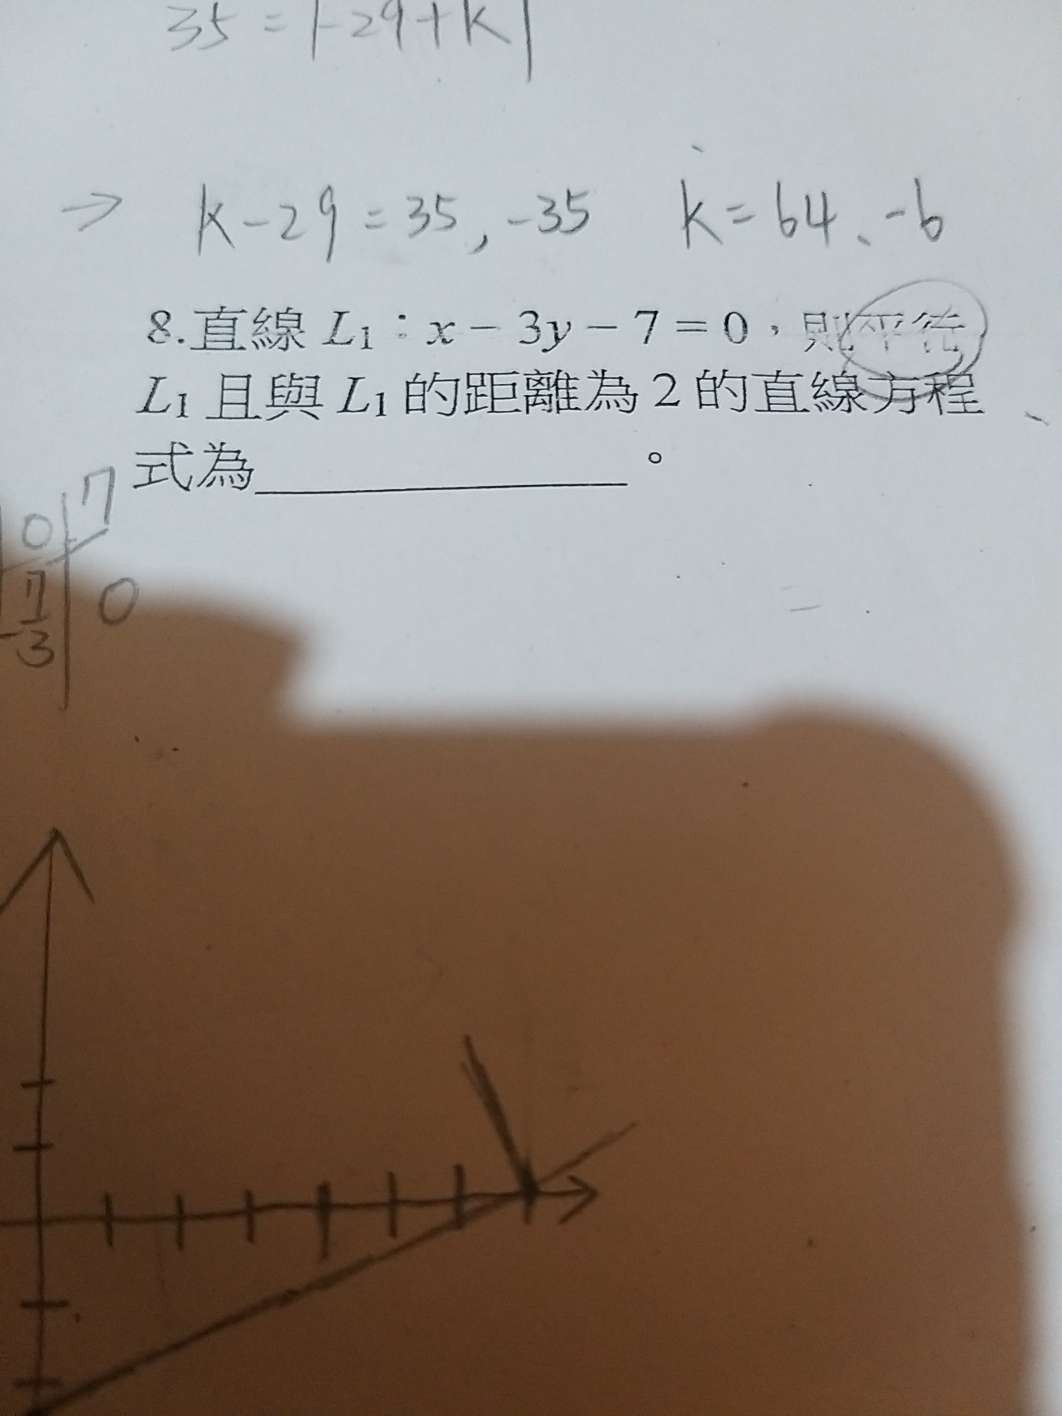 35 = |-29+k|
→ k-29=35, -35 k=64、-6
8.直線 L₁：x－3y－7＝0，則平行
L₁ 且與 L₁ 的距離為 2 的直線方程
式為____________。
0 7
-7/3 0